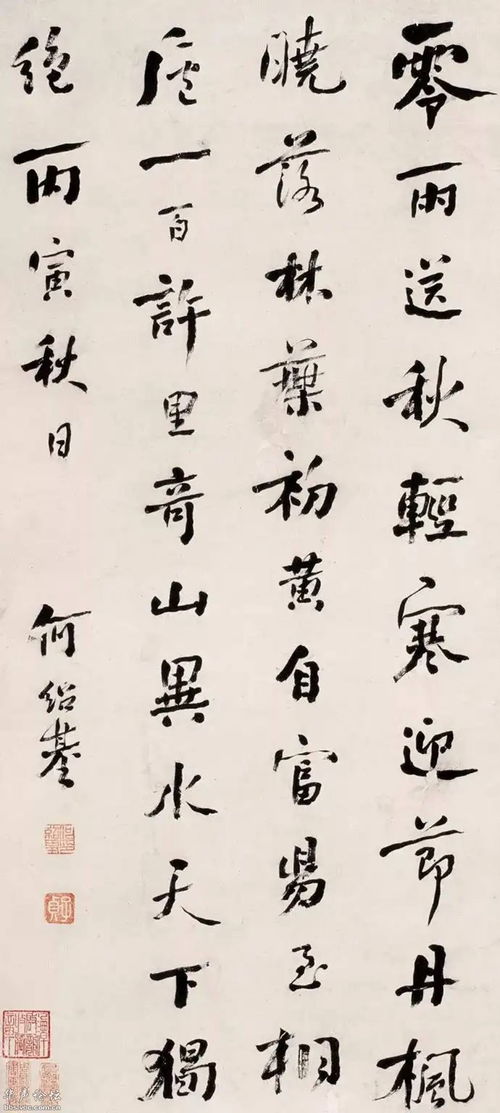 零雨送秋輕寒迎節丹楓
曉落林葉初黃自富昜至相
廬一百許里奇山異水天下獨
絕丙寅秋日
何紹基